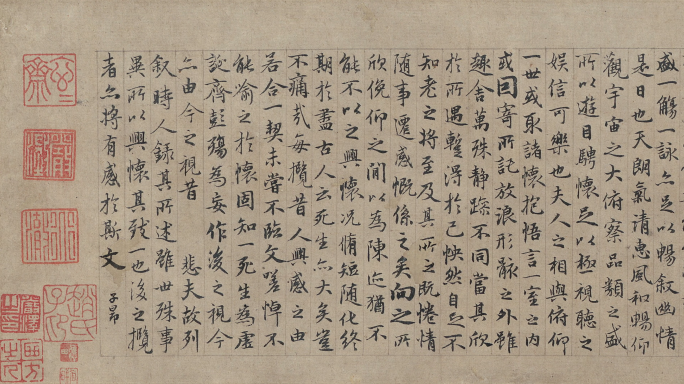 盛一觴一詠亦足以暢叙幽情
是日也天朗氣清惠風和暢仰
觀宇宙之大俯察品類之盛
所以遊目騁懷足以極視聽之
娛信可樂也夫人之相與俯仰
一世或取諸懷抱悟言一室之内
或因寄所託放浪形骸之外雖
趣舍萬殊静躁不同當其欣
於所遇蹔得於己怏然自足不
知老之將至及其所之既惓情
随事遷感慨係之矣向之所
欣俛仰之間以為陳迹猶不
能不以之興懷况脩短随化終
期於盡古人云死生亦大矣豈
不痛哉每攬昔人興感之由
若合一契未嘗不臨文嗟悼不
能喻之於懷固知一死生為虛
誕齊彭殤為妄作後之視今
亦由今之視昔 悲夫故列
叙時人録其所述雖世殊事
異所以興懷其致一也後之攬
者亦將有感於斯文
子昂
趙氏子昂